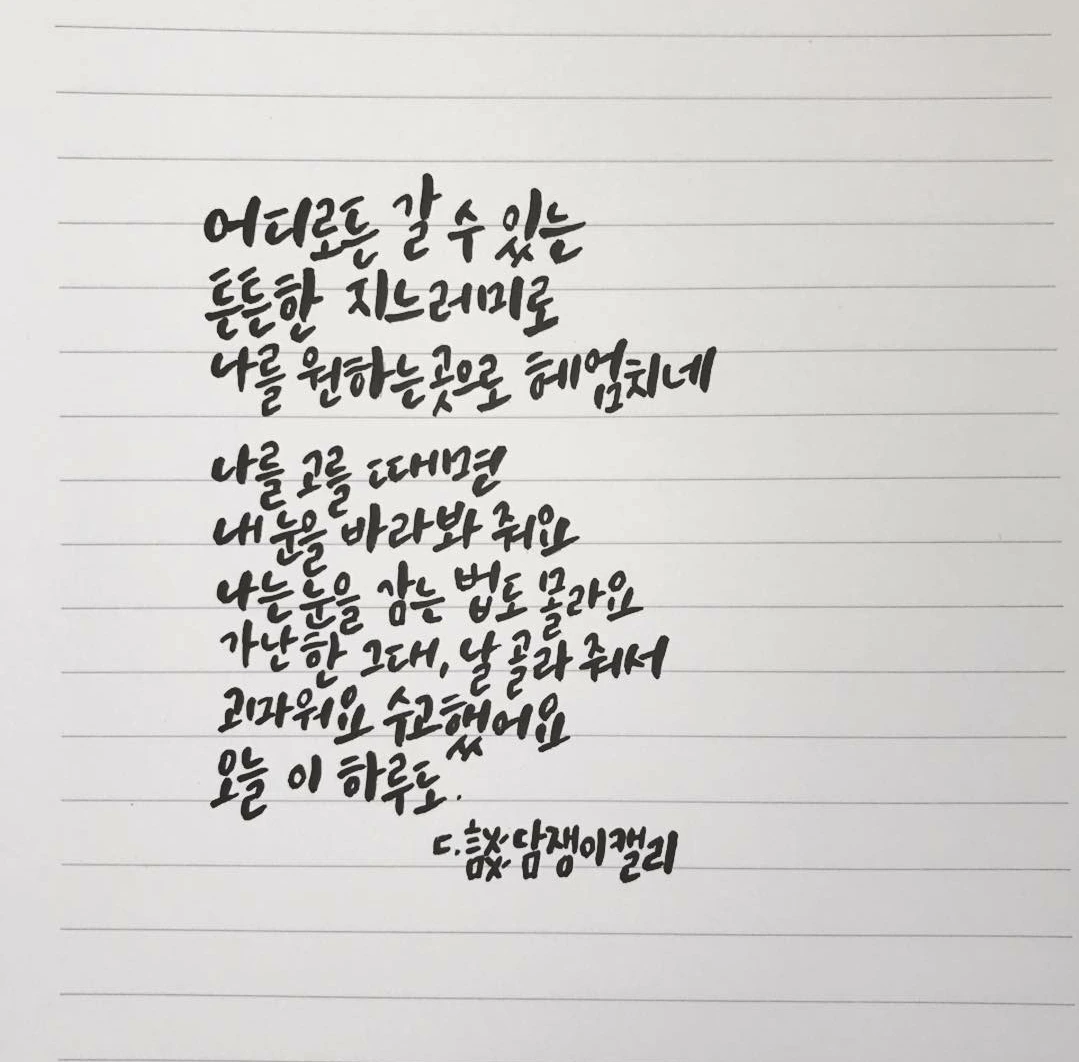 어디로든 갈 수 있는
튼튼한 지느러미로
나를 원하는곳으로 헤엄치네
나를 고를 때면
내 눈을 바라봐 줘요
나는 눈을 감는 법도 몰라요
가난한 그대, 날 골라 줘서
고마워요 수고했어요
오늘 이 하루도.
ㄷ.談 담쟁이캘리